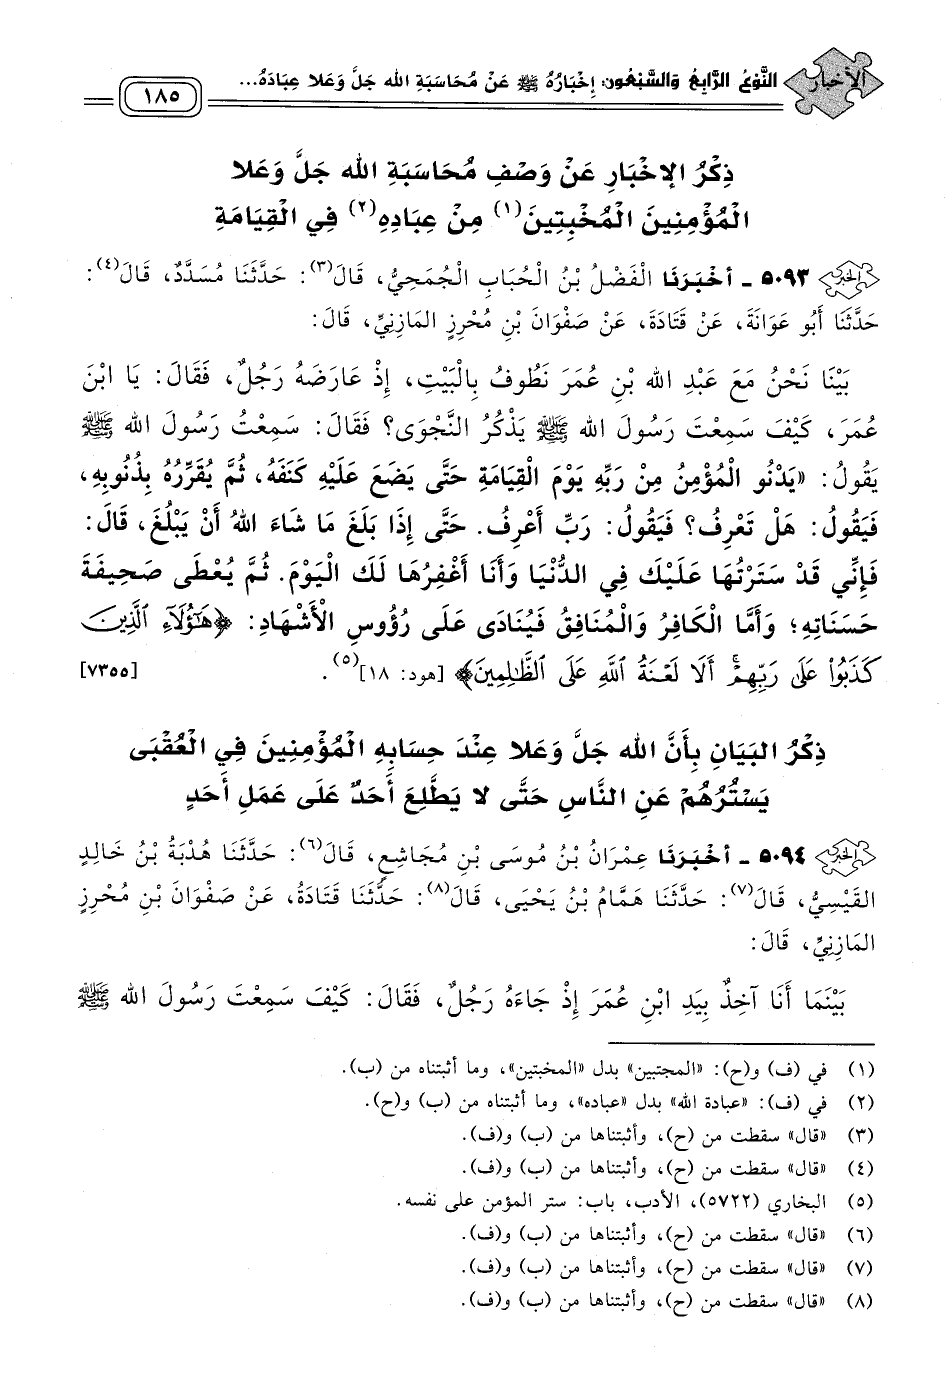 الأخبار
النَّوْعُ الرَّابِعُ وَالسَّبْعُونَ: إِخْبَارُهُ ﷺ عَنْ مُحَاسَبَةِ الله جَلَّ وَعَلا عِبَادَهُ...
١٨٥
ذِكْرُ الإِخْبَارِ عَنْ وَصْفِ مُحَاسَبَةِ الله جَلَّ وَعَلا
الْمُؤْمِنِينَ الْمُخْبِتِينَ(١) مِنْ عِبَادِهِ(٢) فِي الْقِيَامَةِ
٥٠٩٣ - أَخْبَرَنَا الْفَضْلُ بْنُ الْحُبَابِ الْجُمَحِيُّ، قَالَ(٣): حَدَّثَنَا مُسَدَّدٌ، قَالَ(٤):
حَدَّثَنَا أَبُو عَوَانَةَ، عَنْ قَتَادَةَ، عَنْ صَفْوَانَ بْنِ مُحْرِزٍ المَازِنِيِّ، قَالَ:
بَيْنَا نَحْنُ مَعَ عَبْدِ الله بْنِ عُمَرَ نَطُوفُ بِالْبَيْتِ، إِذْ عَارَضَهُ رَجُلٌ، فَقَالَ: يَا ابْنَ
عُمَرَ، كَيْفَ سَمِعْتَ رَسُولَ الله ﷺ يَذْكُرُ النَّجْوَى؟ فَقَالَ: سَمِعْتُ رَسُولَ الله ﷺ
يَقُولُ: «يَدْنُو الْمُؤْمِنُ مِنْ رَبِّهِ يَوْمَ الْقِيَامَةِ حَتَّى يَضَعَ عَلَيْهِ كَنَفَهُ، ثُمَّ يُقَرِّرُهُ بِذُنُوبِهِ،
فَيَقُولُ: هَلْ تَعْرِفُ؟ فَيَقُولُ: رَبِّ أَعْرِفُ. حَتَّى إِذَا بَلَغَ مَا شَاءَ اللهُ أَنْ يَبْلُغَ، قَالَ:
فَإِنِّي قَدْ سَتَرْتُهَا عَلَيْكَ فِي الدُّنْيَا وَأَنَا أَغْفِرُهَا لَكَ الْيَوْمَ. ثُمَّ يُعْطَى صَحِيفَةَ
حَسَنَاتِهِ؛ وَأَمَّا الْكَافِرُ وَالْمُنَافِقُ فَيُنَادَى عَلَى رُؤُوسِ الْأَشْهَادِ: ﴿هَٰٓؤُلَآءِ ٱلَّذِينَ
كَذَبُواْ عَلَىٰ رَبِّهِمْۚ أَلَا لَعْنَةُ ٱللَّهِ عَلَى ٱلظَّٰلِمِينَ﴾ [هود: ١٨](٥). [٧٣٥٥]
ذِكْرُ البَيَانِ بِأَنَّ الله جَلَّ وَعَلا عِنْدَ حِسَابِهِ الْمُؤْمِنِينَ فِي الْعُقْبَى
يَسْتُرُهُمْ عَنِ النَّاسِ حَتَّى لا يَطَّلِعَ أَحَدٌ عَلَى عَمَلِ أَحَدٍ
٥٠٩٤ - أَخْبَرَنَا عِمْرَانُ بْنُ مُوسَى بْنِ مُجَاشِعٍ، قَالَ(٦): حَدَّثَنَا هُدْبَةُ بْنُ خَالِدٍ
القَيْسِيُّ، قَالَ(٧): حَدَّثَنَا هَمَّامُ بْنُ يَحْيَى، قَالَ(٨): حَدَّثَنَا قَتَادَةُ، عَنْ صَفْوَانَ بْنِ مُحْرِزٍ
المَازِنِيِّ، قَالَ:
بَيْنَمَا أَنَا آخِذٌ بِيَدِ ابْنِ عُمَرَ إِذْ جَاءَهُ رَجُلٌ، فَقَالَ: كَيْفَ سَمِعْتَ رَسُولَ الله ﷺ
(١) في (ف) و(ح): «المجتبين» بدل «المخبتين»، وما أثبتناه من (ب).
(٢) في (ف): «عبادة الله» بدل «عباده»، وما أثبتناه من (ب) و(ح).
(٣) «قال» سقطت من (ح)، وأثبتناها من (ب) و(ف).
(٤) «قال» سقطت من (ح)، وأثبتناها من (ب) و(ف).
(٥) البخاري (٥٧٢٢)، الأدب، باب: ستر المؤمن على نفسه.
(٦) «قال» سقطت من (ح)، وأثبتناها من (ب) و(ف).
(٧) «قال» سقطت من (ح)، وأثبتناها من (ب) و(ف).
(٨) «قال» سقطت من (ح)، وأثبتناها من (ب) و(ف).